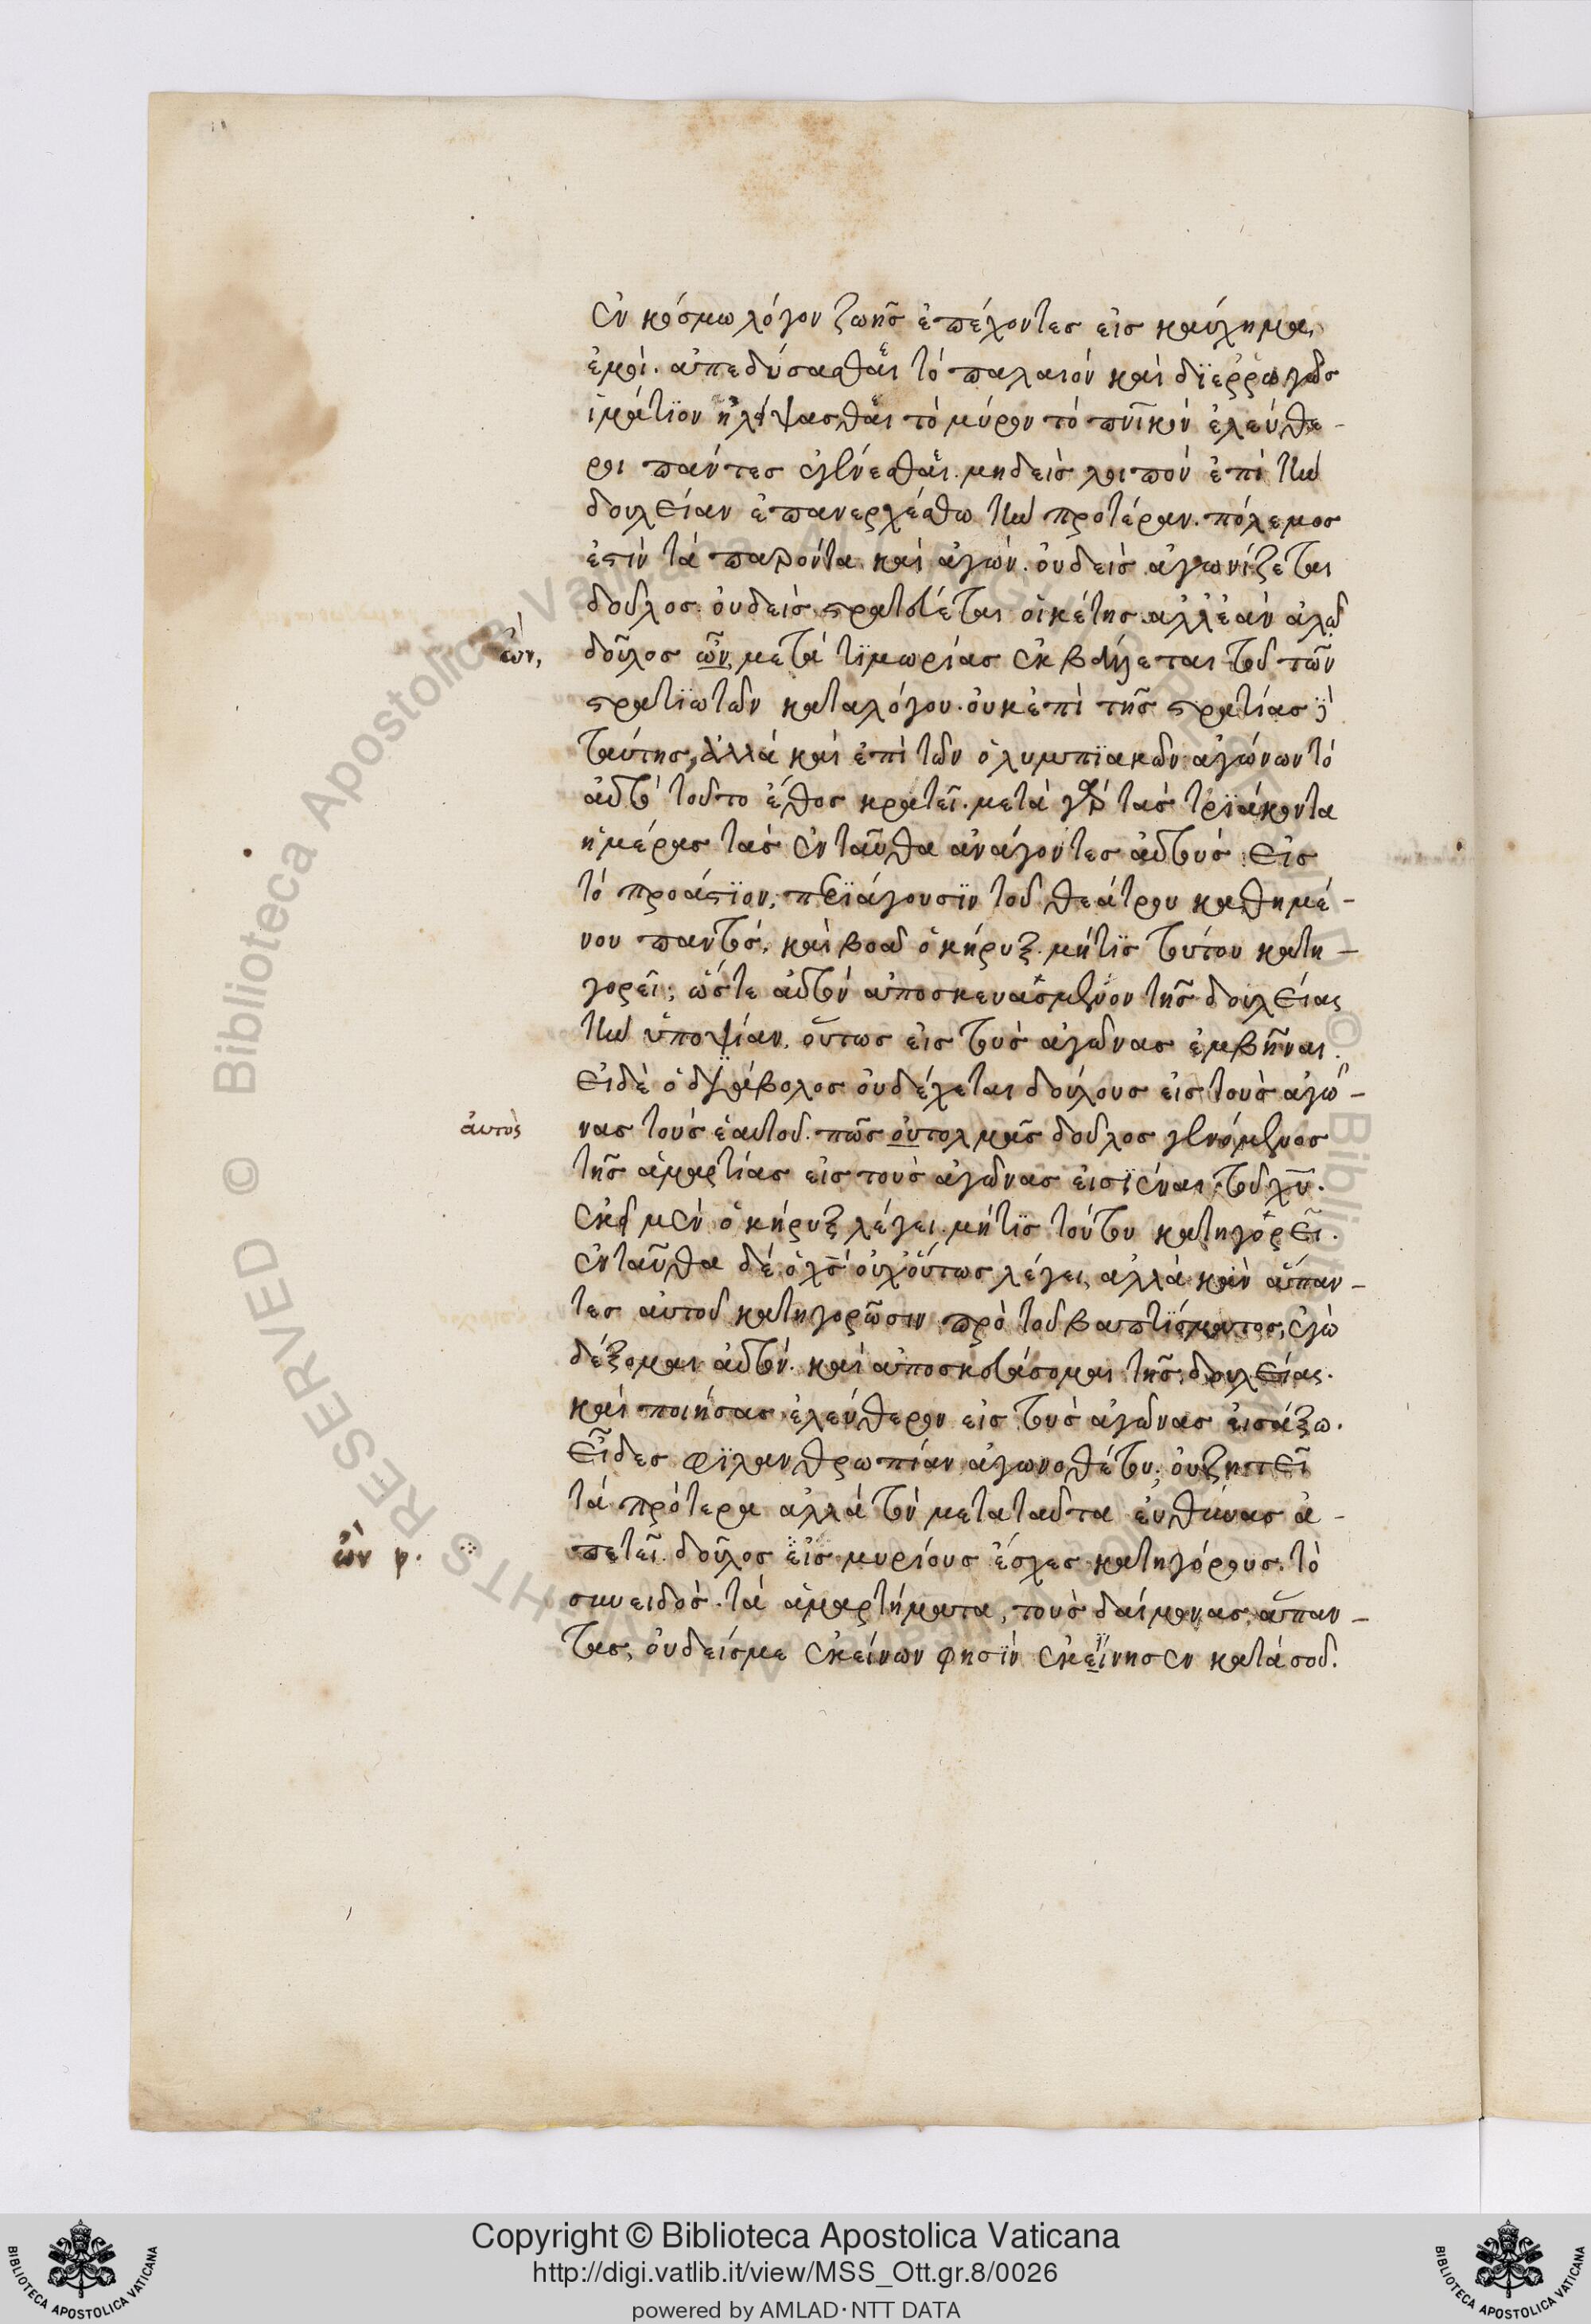 ἐν κόσμω λόγον ζωῆσ ἐπέχοντες εἰσ καύχημα
ἐμοί. ἀπεδύσασθαι τὸ παλαιόν καὶ διερρωγὼσ
ἱμάτιον ἠλείψασθαι τὸ μύρον τὸ πνικόν ἐλεύθε-
ροι πάντες ἐγένεσθαι. μηδεὶσ λοιπόν ἐπὶ τὴν
δουλείαν ἐπανερχέσθω τὴν προτέραν. πόλεμοσ
ἐστὶν τὰ παρόντα καὶ ἀγών. οὐδεὶσ ἀγωνίζεται
δοῦλοσ. οὐδεὶσ στρατεύεται οἰκέτησ ἀλλ' ἐὰν ἀλῶ
ὤν, δοῦλοσ ὤν, μετὰ τιμωρίασ ἐκβάλλεται τοῦ τῶν
στρατιωτῶν καταλόγου. οὐκ ἐπὶ τῆσ στρατίασ δὲ
ταύτησ, ἀλλὰ καὶ ἐπὶ τῶν ὀλυμπιακῶν ἀγώνων τὸ
αὐτὸ τοῦτο ἔθοσ κρατεῖ. μετὰ γὰρ τὰσ τριάκοντα
ἡμέρασ τὰσ ἐνταῦθα ἀνάγοντεσ αὐτοὺσ εἰσ
τὸ προάστιον, περιάγουσιν τοῦ θεάτρου καθημέ-
νου παντόσ, καὶ βοᾶ ὁ κήρυξ. μήτισ τούτου κατη-
γορεῖ; ὥστε αὐτὸν ἀποσκευασμένον τῆσ δουλείας
τὴν ὑποψίαν, οὕτωσ εἰσ τοὺσ ἀγῶνασ ἐμβῆναι.
εἰδὲ ὁ διάβολοσ οὐδέχεται δούλουσ εἰσ τοὺσ ἀγῶ-
αὐτὸς νασ τοὺσ ἑαυτοῦ. πῶσ οὐτολμᾶσ δοῦλοσ γενόμενοσ
τῆσ ἁμαρτίασ εἰσ τοὺσ ἀγῶνασ εἰσιέναι τοῦ χῦ.
ἐκεῖ μὲν ὁ κήρυξ λέγει. μήτισ τούτου κατηγορεῖ.
ἐνταῦθα δὲ ὁ χσ οὐχοὕτωσ λέγει, ἀλλὰ κἂν ἅπαν-
τεσ αὐτοῦ κατηγορῶσιν πρὸ τοῦ βαπτίσματοσ, ἐγὼ
δέξομαι αὐτόν. καὶ ἀποσκευάσομαι τῆσ δουλείας.
καὶ ποιήσασ ἐλεύθερον εἰσ τοὺσ ἀγῶνασ εἰσάξω.
εἶδεσ φιλανθρωπίαν ἀγωνοθέτου; οὐζητεῖ
τὰ πρότερα ἀλλὰ τὸν μεταταῦτα εὐθύνασ ἀ-
ὢν πετεῖ. δοῦλοσ εἶσ μυρίουσ ἔσχεσ κατηγόρουσ. τὸ
συνειδόσ. τὰ ἁμαρτήματα, τοὺσ δαίμονασ, ἅπαν-
τασ, οὐδείσμε ἐκείνων φησὶν ἐκείνησεν κατάσοῦ.
Copyright © Biblioteca Apostolica Vaticana
http://digi.vatlib.it/view/MSS_Ott.gr.8/0026
powered by AMLAD·NTT DATA